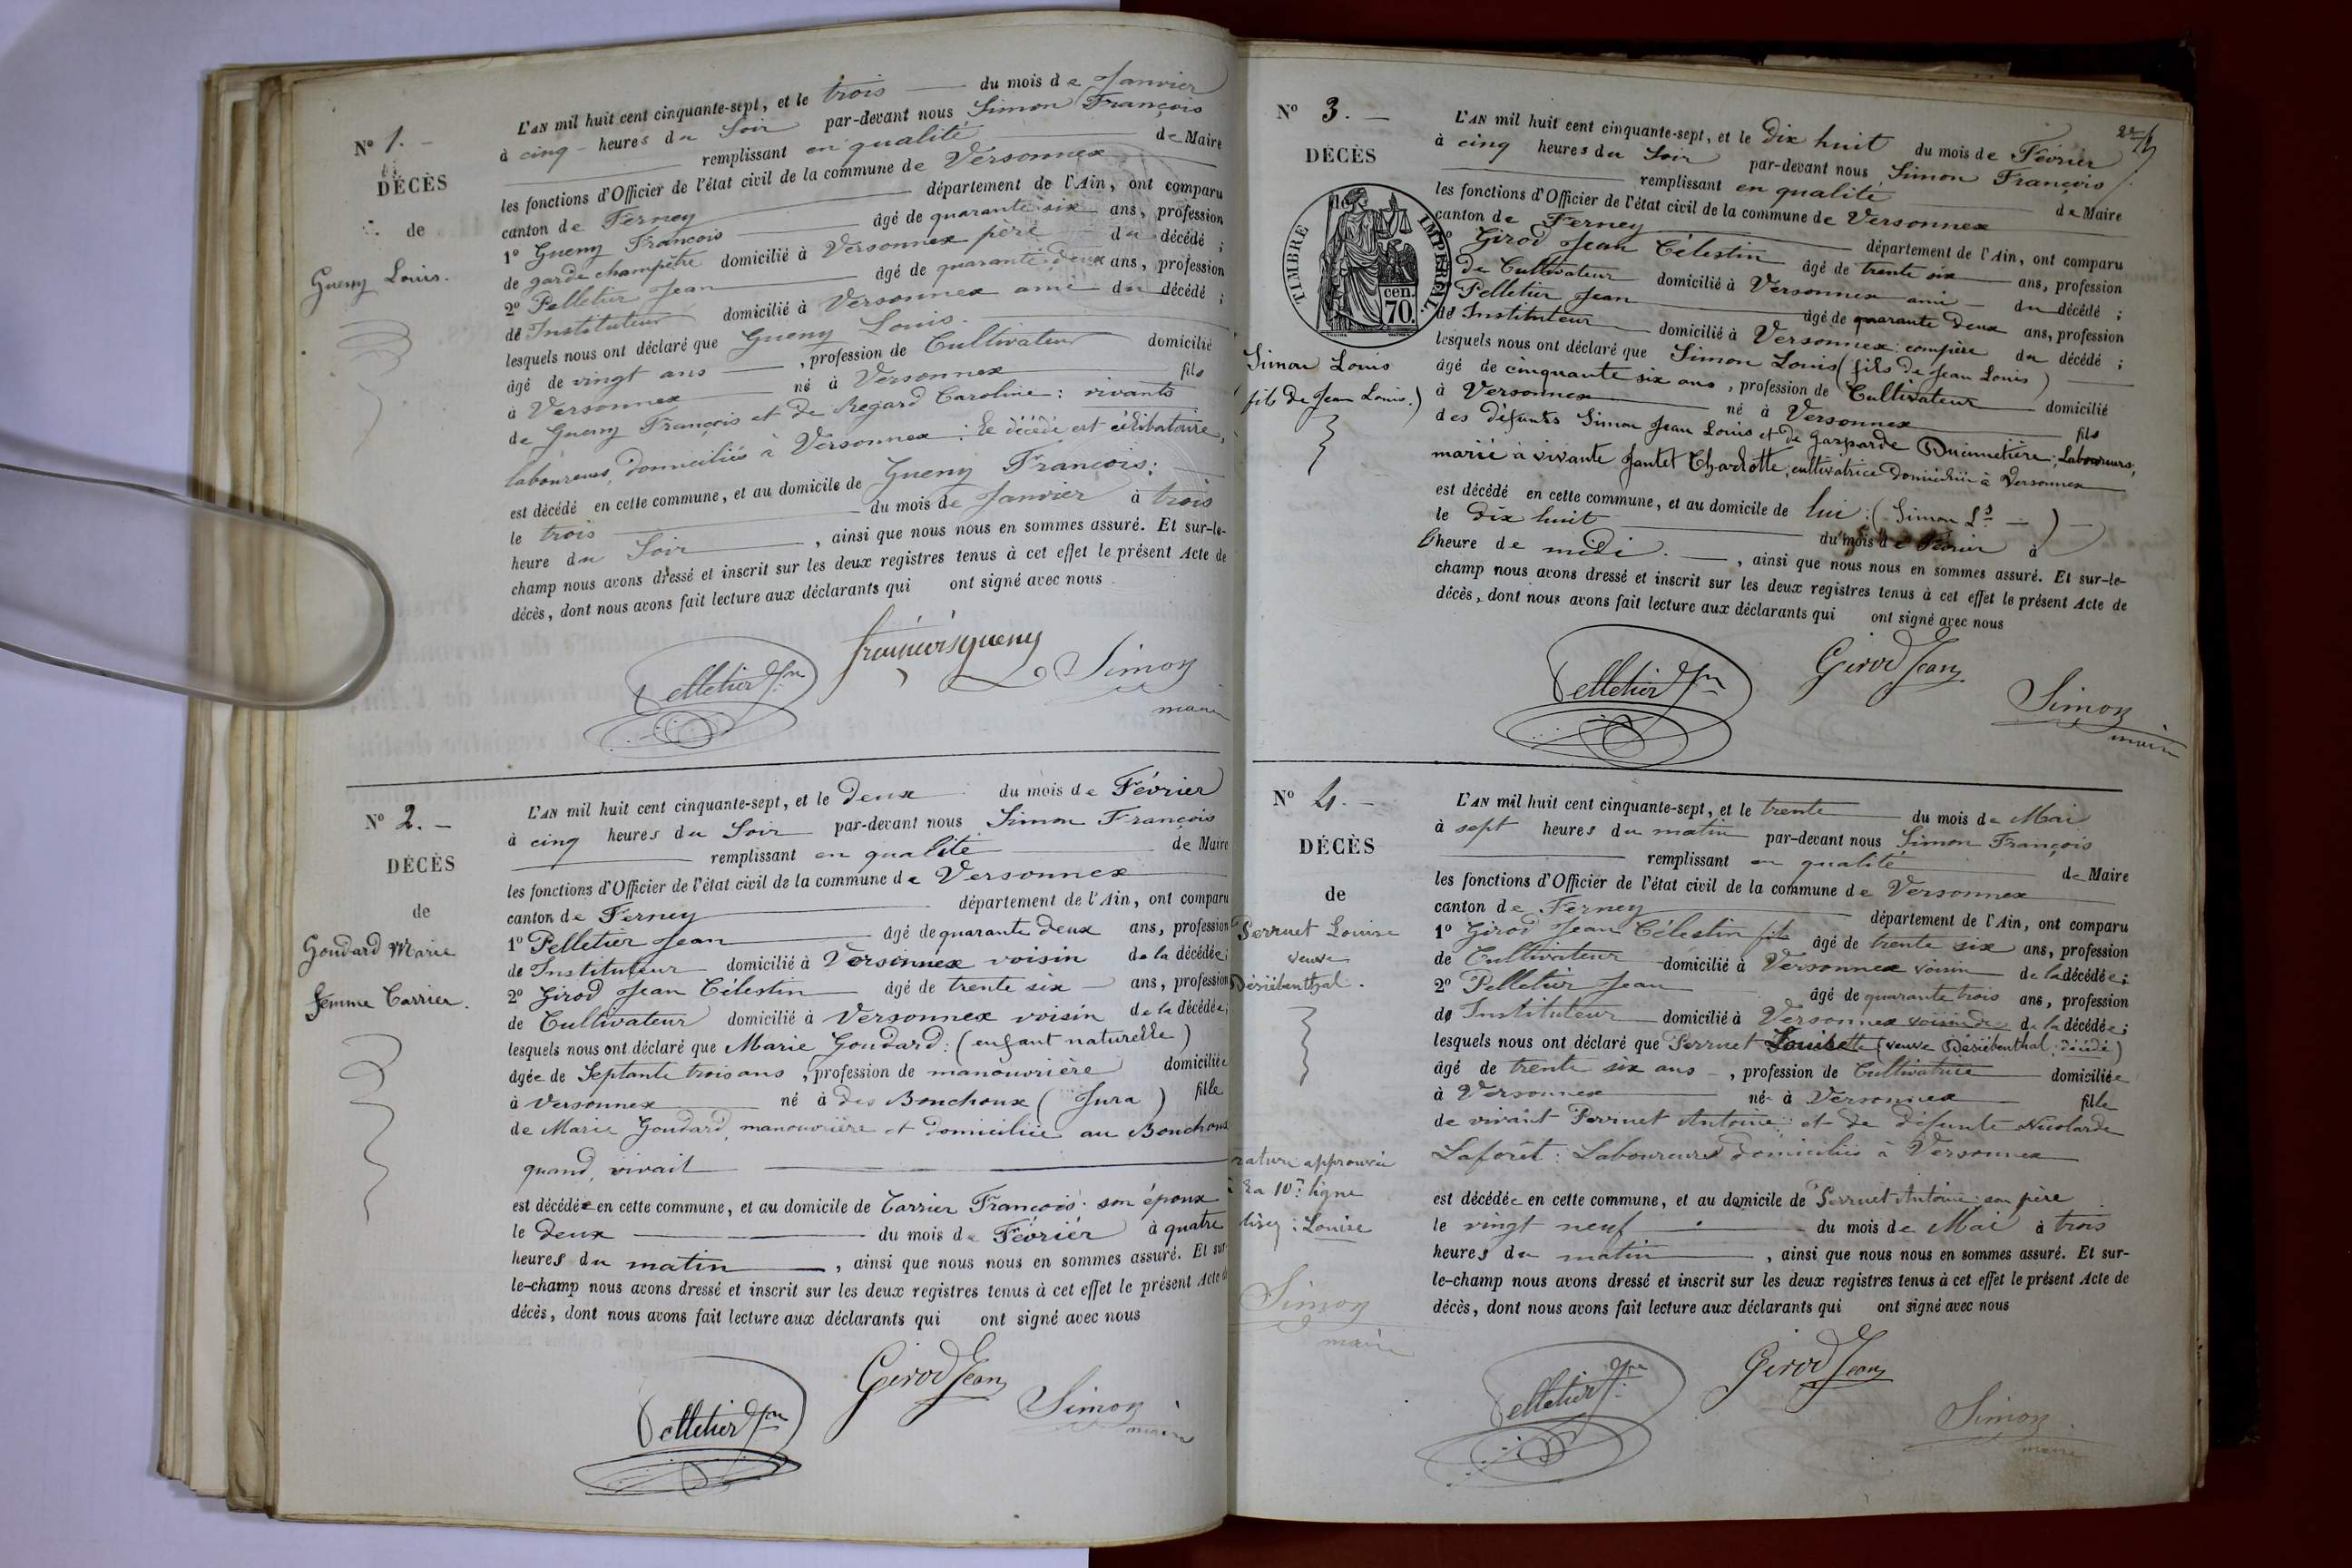 N° 1. —
DÉCÈS
de
Gueny Louis.
L'AN mil huit cent cinquante-sept, et le trois — du mois de Janvier
à cinq heures du Soir par-devant nous Simon François
remplissant en qualité de Maire
les fonctions d'Officier de l'état civil de la commune de Versonnex
canton de Ferney département de l'Ain, ont comparu
1° Gueny François âgé de quarante six ans, profession
de garde champêtre domicilié à Versonnex père du décédé ;
2° Pelletier Jean âgé de quarante deux ans, profession
de Instituteur domicilié à Versonnex ami du décédé ;
lesquels nous ont déclaré que Gueny Louis.
âgé de vingt ans, profession de Cultivateur domicilié
à Versonnex né à Versonnex fils
de Gueny François et de Regard Caroline : vivants
laboureurs, domiciliés à Versonnex : le décédé est célibataire,
est décédé en cette commune, et au domicile de Gueny François ;
le trois du mois de Janvier à trois
heure du Soir, ainsi que nous nous en sommes assuré. Et sur-le-
champ nous avons dressé et inscrit sur les deux registres tenus à cet effet le présent Acte de
décès, dont nous avons fait lecture aux déclarants qui ont signé avec nous
françois gueny
Pelletier Jn Simon
maire
N° 2. —
DÉCÈS
de
Goudard Marie
femme Carrier.
L'AN mil huit cent cinquante-sept, et le deux du mois de Février
à cinq heures du Soir par-devant nous Simon François
remplissant en qualité de Maire
les fonctions d'Officier de l'état civil de la commune de Versonnex
canton de Ferney département de l'Ain, ont comparu
1° Pelletier Jean âgé de quarante deux ans, profession
de Instituteur domicilié à Versonnex voisin de la décédée ;
2° Girod Jean Célestin âgé de trente six ans, profession
de Cultivateur domicilié à Versonnex voisin de la décédée ;
lesquels nous ont déclaré que Marie Goudard : (enfant naturelle)
âgée de Septante trois ans, profession de manouvrière domiciliée
à Versonnex né à des Bouchoux (Jura) fille
de Marie Goudard, manouvrière et domiciliée au Bouchoux
quand, vivait
est décédée en cette commune, et au domicile de Carrier François : son époux
le deux du mois de Février à quatre
heures du matin, ainsi que nous nous en sommes assuré. Et sur
le-champ nous avons dressé et inscrit sur les deux registres tenus à cet effet le présent Acte de
décès, dont nous avons fait lecture aux déclarants qui ont signé avec nous
Girod Jean
Pelletier Jn Simon
maire
N° 3. —
DÉCÈS
TIMBRE IMPERIAL.
70. cen.
Simon Louis
(fils de Jean Louis.)
L'AN mil huit cent cinquante-sept, et le dix huit du mois de Février
à cinq heures du Soir par-devant nous Simon François
remplissant en qualité de Maire
les fonctions d'Officier de l'état civil de la commune de Versonnex
canton de Ferney département de l'Ain, ont comparu
Girod Jean Célestin âgé de trente six ans, profession
de Cultivateur domicilié à Versonnex ami du décédé ;
Pelletier Jean âgé de quarante deux ans, profession
de Instituteur domicilié à Versonnex : compère du décédé ;
lesquels nous ont déclaré que Simon Louis (fils de Jean Louis)
âgé de cinquante six ans, profession de Cultivateur domicilié
à Versonnex né à Versonnex fils
des défunts Simon Jean Louis et de Gasparde Ducimetière ; Laboureurs,
marié à vivante Jantet Charlotte, cultivatrice domiciliée à Versonnex
est décédé en cette commune, et au domicile de lui : (Simon Ls —) —
le dix huit du mois de Février à
l'heure de midi. —, ainsi que nous nous en sommes assuré. Et sur-le-
champ nous avons dressé et inscrit sur les deux registres tenus à cet effet le présent Acte de
décès, dont nous avons fait lecture aux déclarants qui ont signé avec nous
Pelletier Jn Girod Jean
Simon
maire
N° 4. —
DÉCÈS
de
Perruet Louise
veuve
Désiébenthal.
rature approuvée
à la 10e ligne
lisez : Louise
Simon
maire
L'AN mil huit cent cinquante-sept, et le trente du mois de Mai
à sept heures du matin par-devant nous Simon François
remplissant en qualité de Maire
les fonctions d'Officier de l'état civil de la commune de Versonnex
canton de Ferney département de l'Ain, ont comparu
1° Girod Jean Célestin fils âgé de trente six ans, profession
de Cultivateur domicilié à Versonnex voisin de la décédée ;
2° Pelletier Jean âgé de quarante trois ans, profession
de Instituteur domicilié à Versonnex voisin de la décédée ;
lesquels nous ont déclaré que Perruet (veuve Désiébenthal, décédé)
âgé de trente six ans —, profession de Cultivatrice domiciliée
à Versonnex né à Versonnex fille
de vivant Perruet Antoine : et de défunte Nicolarde
Laforêt : Laboureurs domiciliés à Versonnex
est décédée en cette commune, et au domicile de Perruet Antoine : son père
le vingt neuf du mois de Mai à trois
heures du matin, ainsi que nous nous en sommes assuré. Et sur-
le-champ nous avons dressé et inscrit sur les deux registres tenus à cet effet le présent Acte de
décès, dont nous avons fait lecture aux déclarants qui ont signé avec nous
Pelletier Jn Girod Jean
Simon
maire